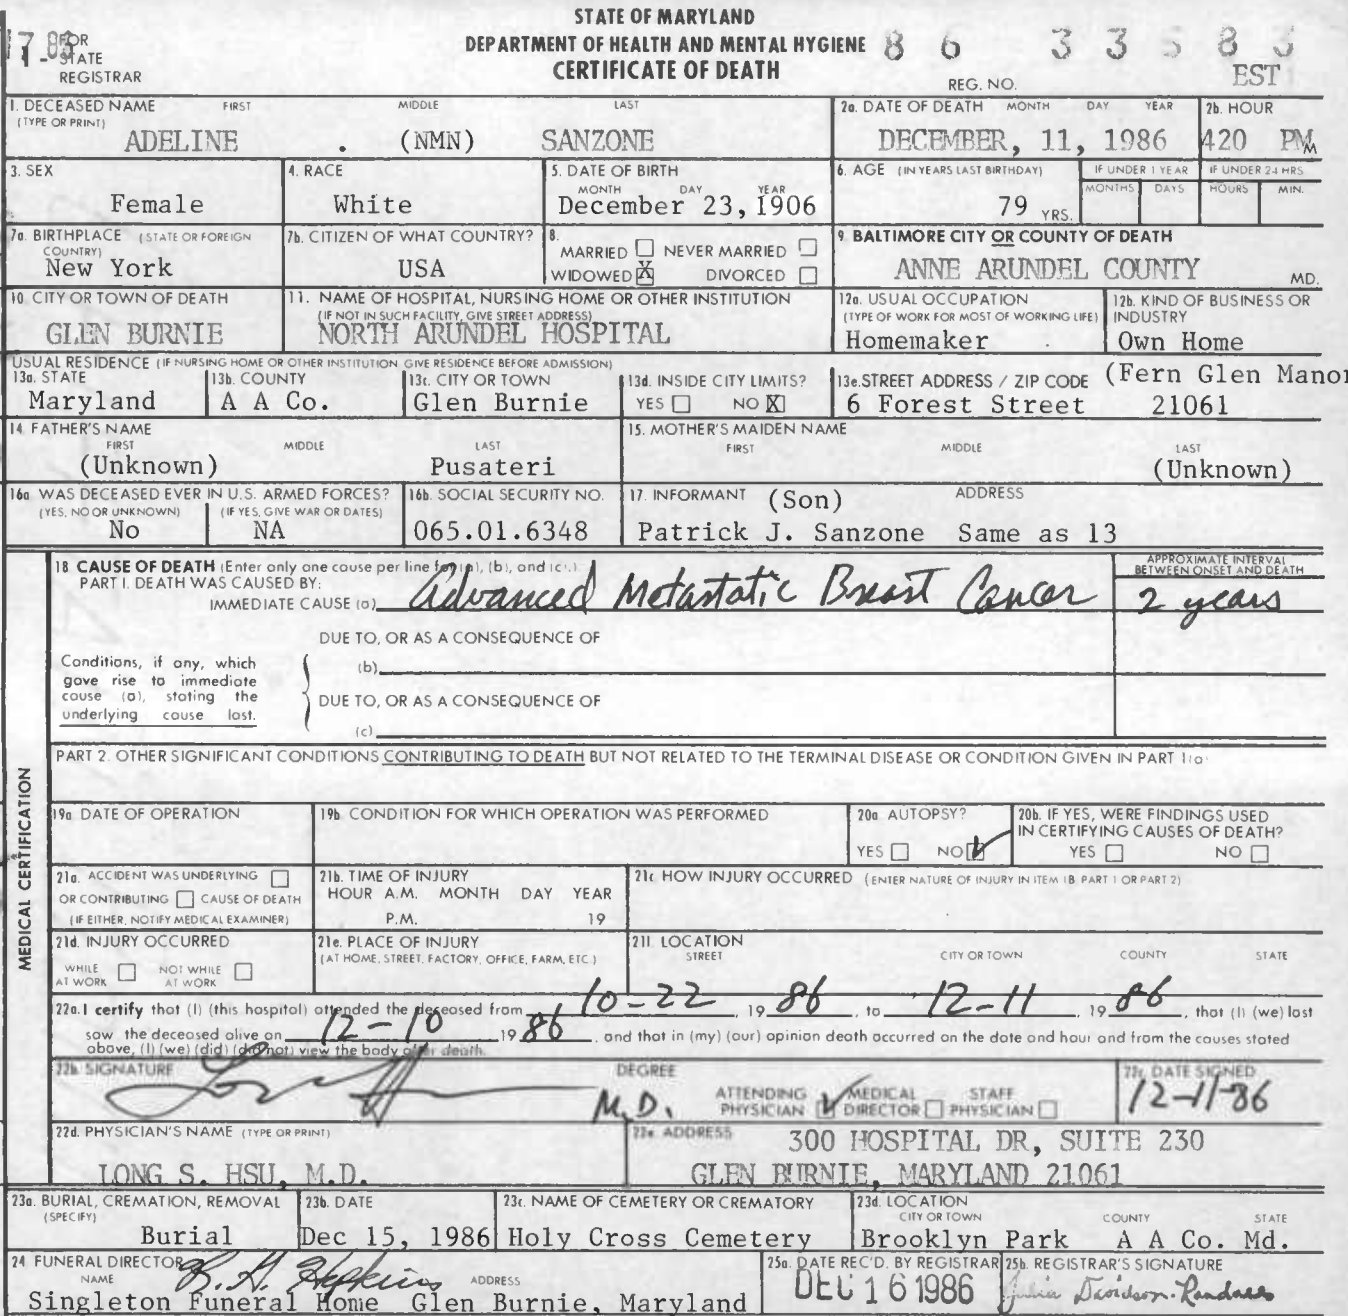 STATE OF MARYLAND
DEPARTMENT OF HEALTH AND MENTAL HYGIENE
CERTIFICATE OF DEATH
FOR STATE REGISTRAR
REG. NO. 86 33583
EST
1. DECEASED NAME FIRST MIDDLE LAST
(TYPE OR PRINT)
ADELINE . (NMN) SANZONE
2a. DATE OF DEATH MONTH DAY YEAR
DECEMBER, 11, 1986
2b. HOUR
420 PM M
3. SEX
Female
4. RACE
White
5. DATE OF BIRTH
MONTH DAY YEAR
December 23, 1906
6. AGE (IN YEARS LAST BIRTHDAY)
79 YRS.
IF UNDER 1 YEAR
MONTHS DAYS
IF UNDER 24 HRS
HOURS MIN.
7a. BIRTHPLACE (STATE OR FOREIGN COUNTRY)
New York
7b. CITIZEN OF WHAT COUNTRY?
USA
8.
MARRIED NEVER MARRIED
WIDOWED X DIVORCED
9. BALTIMORE CITY OR COUNTY OF DEATH
ANNE ARUNDEL COUNTY MD.
10. CITY OR TOWN OF DEATH
GLEN BURNIE
11. NAME OF HOSPITAL, NURSING HOME OR OTHER INSTITUTION
(IF NOT IN SUCH FACILITY, GIVE STREET ADDRESS)
NORTH ARUNDEL HOSPITAL
12a. USUAL OCCUPATION
(TYPE OF WORK FOR MOST OF WORKING LIFE)
Homemaker
12b. KIND OF BUSINESS OR INDUSTRY
Own Home
USUAL RESIDENCE (IF NURSING HOME OR OTHER INSTITUTION GIVE RESIDENCE BEFORE ADMISSION)
13a. STATE
Maryland
13b. COUNTY
A A Co.
13c. CITY OR TOWN
Glen Burnie
13d. INSIDE CITY LIMITS?
YES NO X
13e. STREET ADDRESS / ZIP CODE (Fern Glen Manor
6 Forest Street 21061
14. FATHER'S NAME
FIRST MIDDLE LAST
(Unknown) Pusateri
15. MOTHER'S MAIDEN NAME
FIRST MIDDLE LAST
(Unknown)
16a. WAS DECEASED EVER IN U.S. ARMED FORCES?
(YES, NO OR UNKNOWN) (IF YES, GIVE WAR OR DATES)
No NA
16b. SOCIAL SECURITY NO.
065.01.6348
17. INFORMANT (Son) ADDRESS
Patrick J. Sanzone Same as 13
MEDICAL CERTIFICATION
18 CAUSE OF DEATH (Enter only one cause per line for (a), (b), and (c).)
PART I. DEATH WAS CAUSED BY:
IMMEDIATE CAUSE (a) Advanced Metastatic Breast Cancer
APPROXIMATE INTERVAL BETWEEN ONSET AND DEATH
2 years
DUE TO, OR AS A CONSEQUENCE OF
(b)
Conditions, if any, which gave rise to immediate cause (a), stating the underlying cause last.
DUE TO, OR AS A CONSEQUENCE OF
(c)
PART 2. OTHER SIGNIFICANT CONDITIONS CONTRIBUTING TO DEATH BUT NOT RELATED TO THE TERMINAL DISEASE OR CONDITION GIVEN IN PART 1(a)
19a DATE OF OPERATION
19b. CONDITION FOR WHICH OPERATION WAS PERFORMED
20a AUTOPSY?
YES NO ✓
20b. IF YES, WERE FINDINGS USED IN CERTIFYING CAUSES OF DEATH?
YES NO
21a. ACCIDENT WAS UNDERLYING
OR CONTRIBUTING CAUSE OF DEATH
(IF EITHER, NOTIFY MEDICAL EXAMINER)
21b. TIME OF INJURY
HOUR A.M. MONTH DAY YEAR
P.M. 19
21c HOW INJURY OCCURRED (ENTER NATURE OF INJURY IN ITEM 18 PART 1 OR PART 2)
21d. INJURY OCCURRED
WHILE AT WORK NOT WHILE AT WORK
21e. PLACE OF INJURY
(AT HOME, STREET, FACTORY, OFFICE, FARM, ETC.)
21f. LOCATION
STREET CITY OR TOWN COUNTY STATE
22a. I certify that (I) (this hospital) attended the deceased from 10-22 1986, to 12-11 1986, that (I) (we) last
saw the deceased alive on 12-10 1986, and that in (my) (our) opinion death occurred on the date and hour and from the causes stated
above, (I) (we) (did) (did not) view the body after death.
22b. SIGNATURE DEGREE
M.D.
ATTENDING PHYSICIAN ✓ MEDICAL DIRECTOR STAFF PHYSICIAN
22c. DATE SIGNED
12-11-86
22d. PHYSICIAN'S NAME (TYPE OR PRINT)
LONG S. HSU, M.D.
22e ADDRESS
300 HOSPITAL DR, SUITE 230
GLEN BURNIE, MARYLAND 21061
23a. BURIAL, CREMATION, REMOVAL
(SPECIFY)
Burial
23b. DATE
Dec 15, 1986
23c. NAME OF CEMETERY OR CREMATORY
Holy Cross Cemetery
23d. LOCATION
CITY OR TOWN COUNTY STATE
Brooklyn Park A A Co. Md.
24 FUNERAL DIRECTOR
NAME ADDRESS
Singleton Funeral Home Glen Burnie, Maryland
25a. DATE REC'D. BY REGISTRAR
DEC 16 1986
25b. REGISTRAR'S SIGNATURE
Julia Davidson-Randall